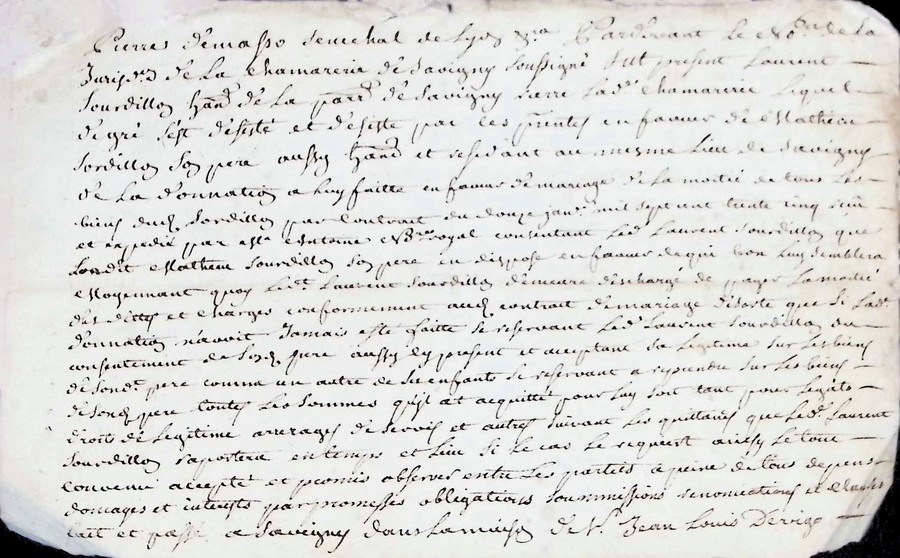 Pierres demasso senechal de Lyon Pardevant le No.re de la
Jurisd.on de La Chamarerie de Savigny soussigné fut present Laurent
Sourdillon de La parr.e de Savigny Lad.e Chamarerie Lequel
de gré s'est désisté et desiste par Les pr̃ntes en faveur de Mathieu
Sordillon son pere aussy et residant au mesme Lieu de Savigny
de La donnation a Luy faitte en faveur de mariage de La moitié de tous Les
biens dud. Sordillon par Contrait du douze janv. mil sept cent trente cinq
et expedié par M.e Antoine No.re royal consentant Led. Laurent Sourdillon que
Ledit Mathieu Sourdillon son pere en dispose en faveur de qui bon Luy semblera
Moyennant quoy Led.t Laurent Sourdillon demeure deschargé de payer La moitié
des dettes et Charges conformement aud. contrait de mariage desorte que si Lad.e
donnation n'avoit Jamais esté faitte se reservant Led. Laurent Sourdillon du
consentement de Sond. pere aussy Cy present et acceptant sa Legitime sur Les biens
de Sond.t pere comme un autre de ses enfants se reservant a repeindre sur Les biens
de Sond. pere toutes Les Sommes qu'il a acquitté pour Luy soit tant pour Legats
droits de Legitime arrerages de servis et autres suivant Les quittances que Led. Laurent
Sourdillon raportera en temps et Lieu si Le cas Le requiert ainsy Le tout
convenu accepté et promis observer entre Les parties a peine de tous depens
domages et interests par promesses obligations soummissions renonciations et clauses
fait et passé a Savigny dans La maison de S.r Jean Louis